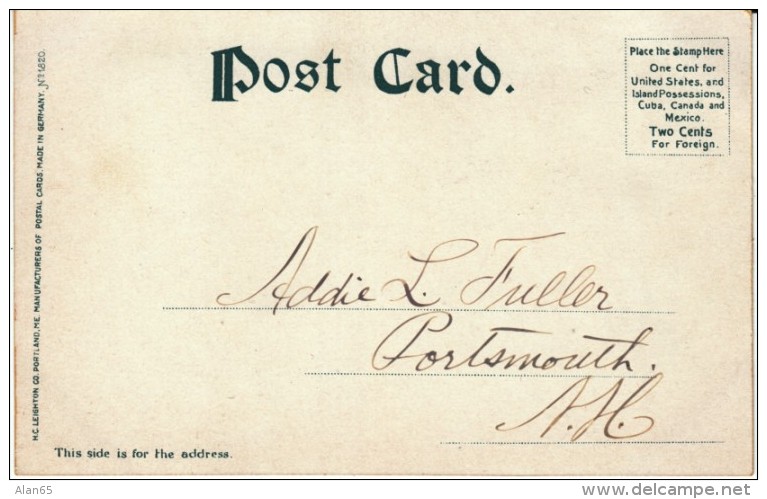 Post Card.
Place the Stamp Here
One Cent for
United States, and
Island Possessions,
Cuba, Canada and
Mexico.
Two Cents
For Foreign.
H.C. LEIGHTON CO. PORTLAND, ME. MANUFACTURERS OF POSTAL CARDS. MADE IN GERMANY. Nº 1820.
Addie L. Fuller
Portsmouth.
N.H.
This side is for the address.
Alan65
http://www.delcampe.net